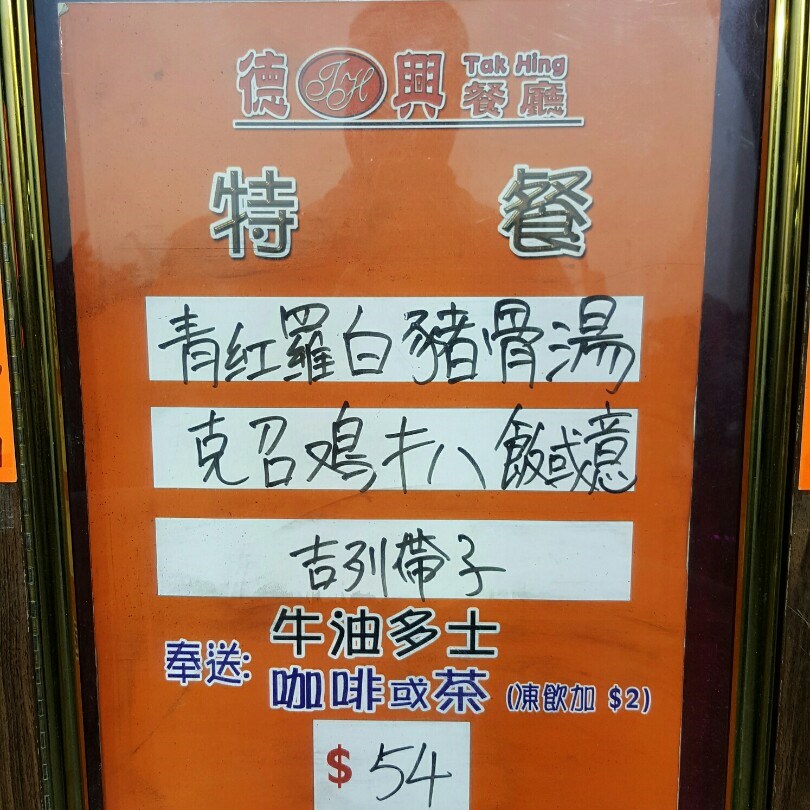 德 TH 興 Tak Hing 餐廳
特餐
青紅羅白豬骨湯
克召鳮扒飯或意
吉列帶子
奉送: 牛油多士
咖啡或茶 (凍飲加 $2)
$ 54